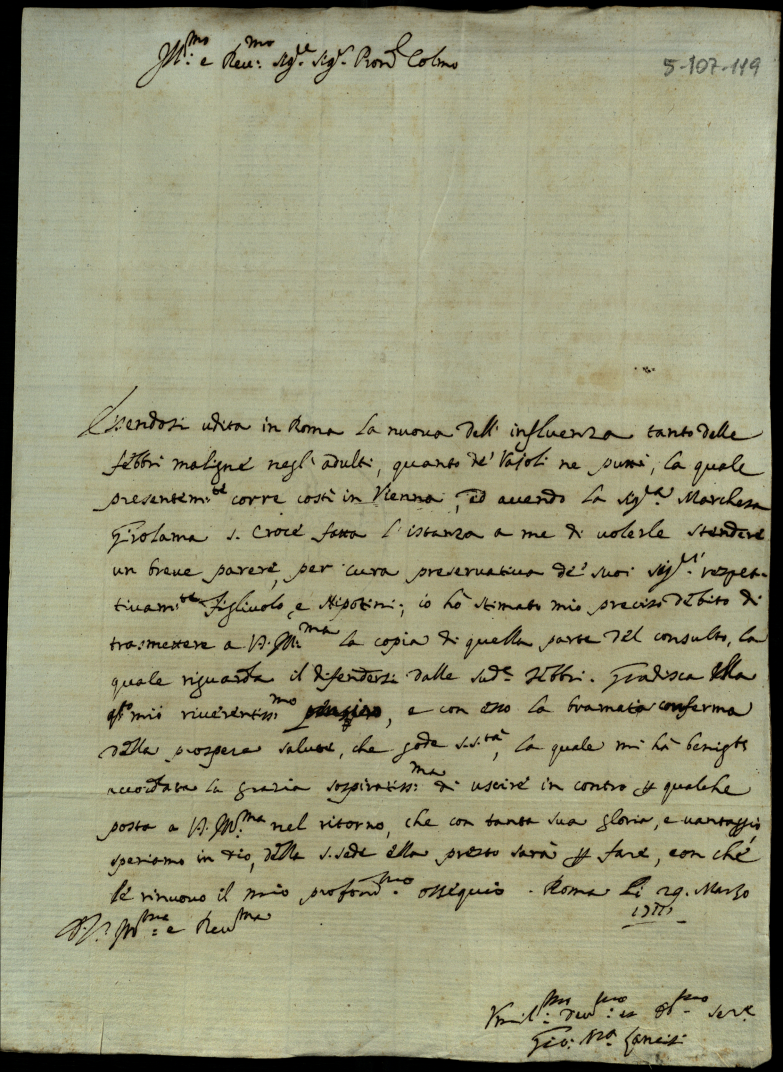 Ill:mo e Reu:mo Sig.e Sig.r Pron.e Colmo
5-107-119
Essendosi udita in Roma la nuova dell'influenza tanto delle
febbri maligne negl'adulti, quanto de' Vajoli ne putti, la quale
presentem:te corre costì in Vienna, ed auendo la Sig.ra Marchesa
Girolama S. Croce fatta l'istanza a me di uolerle stendere
un breue parere, per cura preseruatiua de' suoi Sig.ri respet-
tiuam:te Figliuolo, e Nipotini; io hò stimato mio preciso debito di
trasmettere a V.S. Ill:ma la copia di quella parte del consulto, la
quale riguarda il difendersi dalle sud.e febbri. Gradisca Ella
q.sto mio riuerentiss:mo, e con esso la bramata conferma
della prospera salute, che gode S.S.tà, la quale mi hà benig.te
accordata la grazia sospiratiss:ma di uscire in contro qualche
posta a V.S. Ill:ma nel ritorno, che con tanta sua gloria, e uantaggio
speriamo in Dio, della S. Sede ella presto sarà fare, con chè
le rinuouo il mio profond:mo ossequio. Roma li 29. Marzo
1711
D V.S. Ill:ma e Reu:ma
Umil:mo Deu:mo et Ob:mo Ser.e
Gio: M.a Lancisi